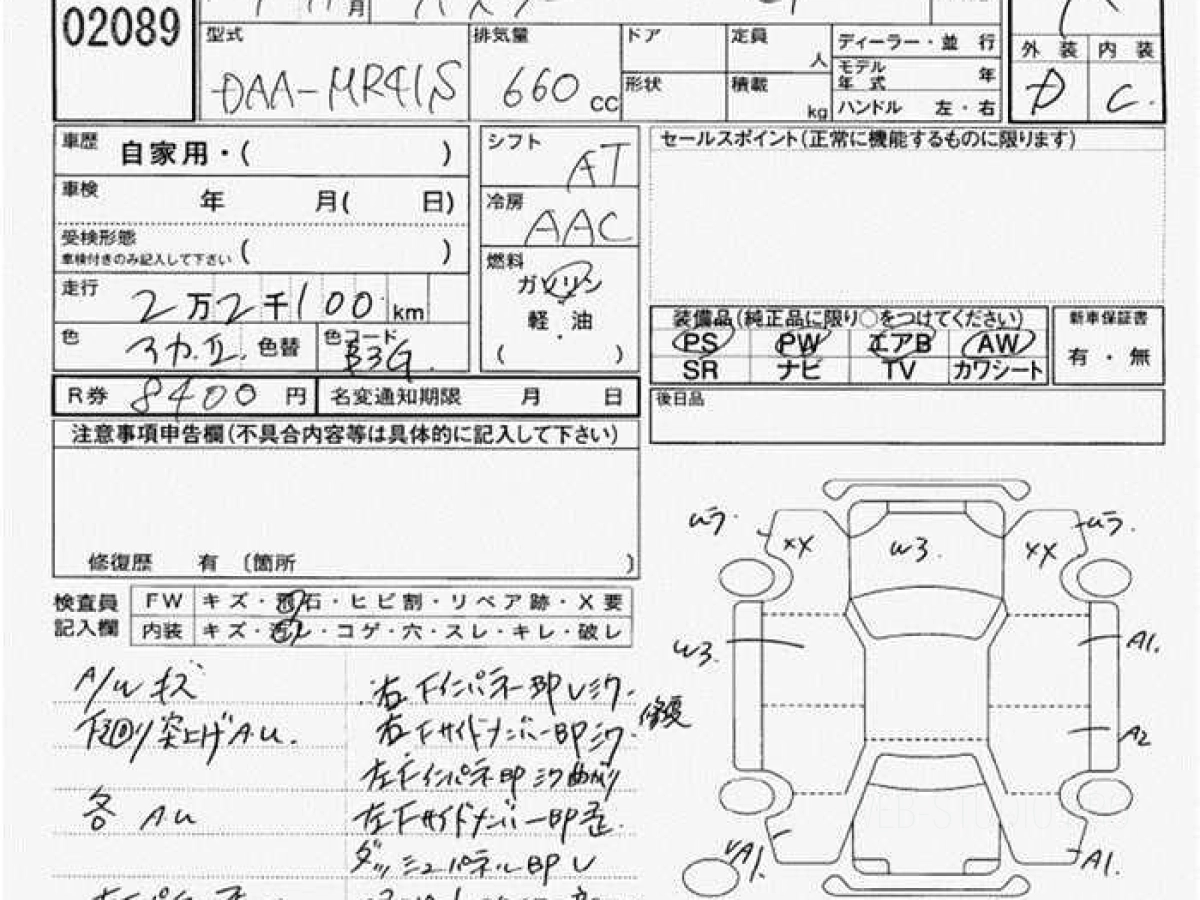 02089
型式
DAA-MR41S
排気量
660 cc
ドア
形状
定員
人
積載
kg
ディーラー・並 行
モデル
年 式
年
ハンドル 左・右
外 装 内 装
D C.
車歴 自家用・( )
車検 年 月( 日)
受検形態
車検付きのみ記入して下さい ( )
走行 2万2千100 km
色 色替
色コード
B3G
R券 8400 円 名変通知期限 月 日
シフト
AT
冷房
AAC
燃料
ガソリン
軽・油
( )
セールスポイント(正常に機能するものに限ります)
装備品(純正品に限り○をつけてください)
PS PW エアB AW
SR ナビ TV カワシート
新車保証書
有・無
後日品
注意事項申告欄(不具合内容等は具体的に記入して下さい)
修復歴 有 〔箇所 )
検査員
記入欄
FW キズ・飛石・ヒビ割・リペア跡・X要
内装 キズ・汚レ・コゲ・穴・スレ・キレ・破レ
A/W キズ
下回り突上げAU.
各 AU
右Fインパネ BP Uミワ.
右FサイドメンバーBPミワ. 修復
左Fインパネ BP ミワ曲がり
左FサイドメンバーBP歪.
ダッシュパネルBP U
Uラ. Uラ.
XX W3. XX
W3. A1.
A2
A1. A1.